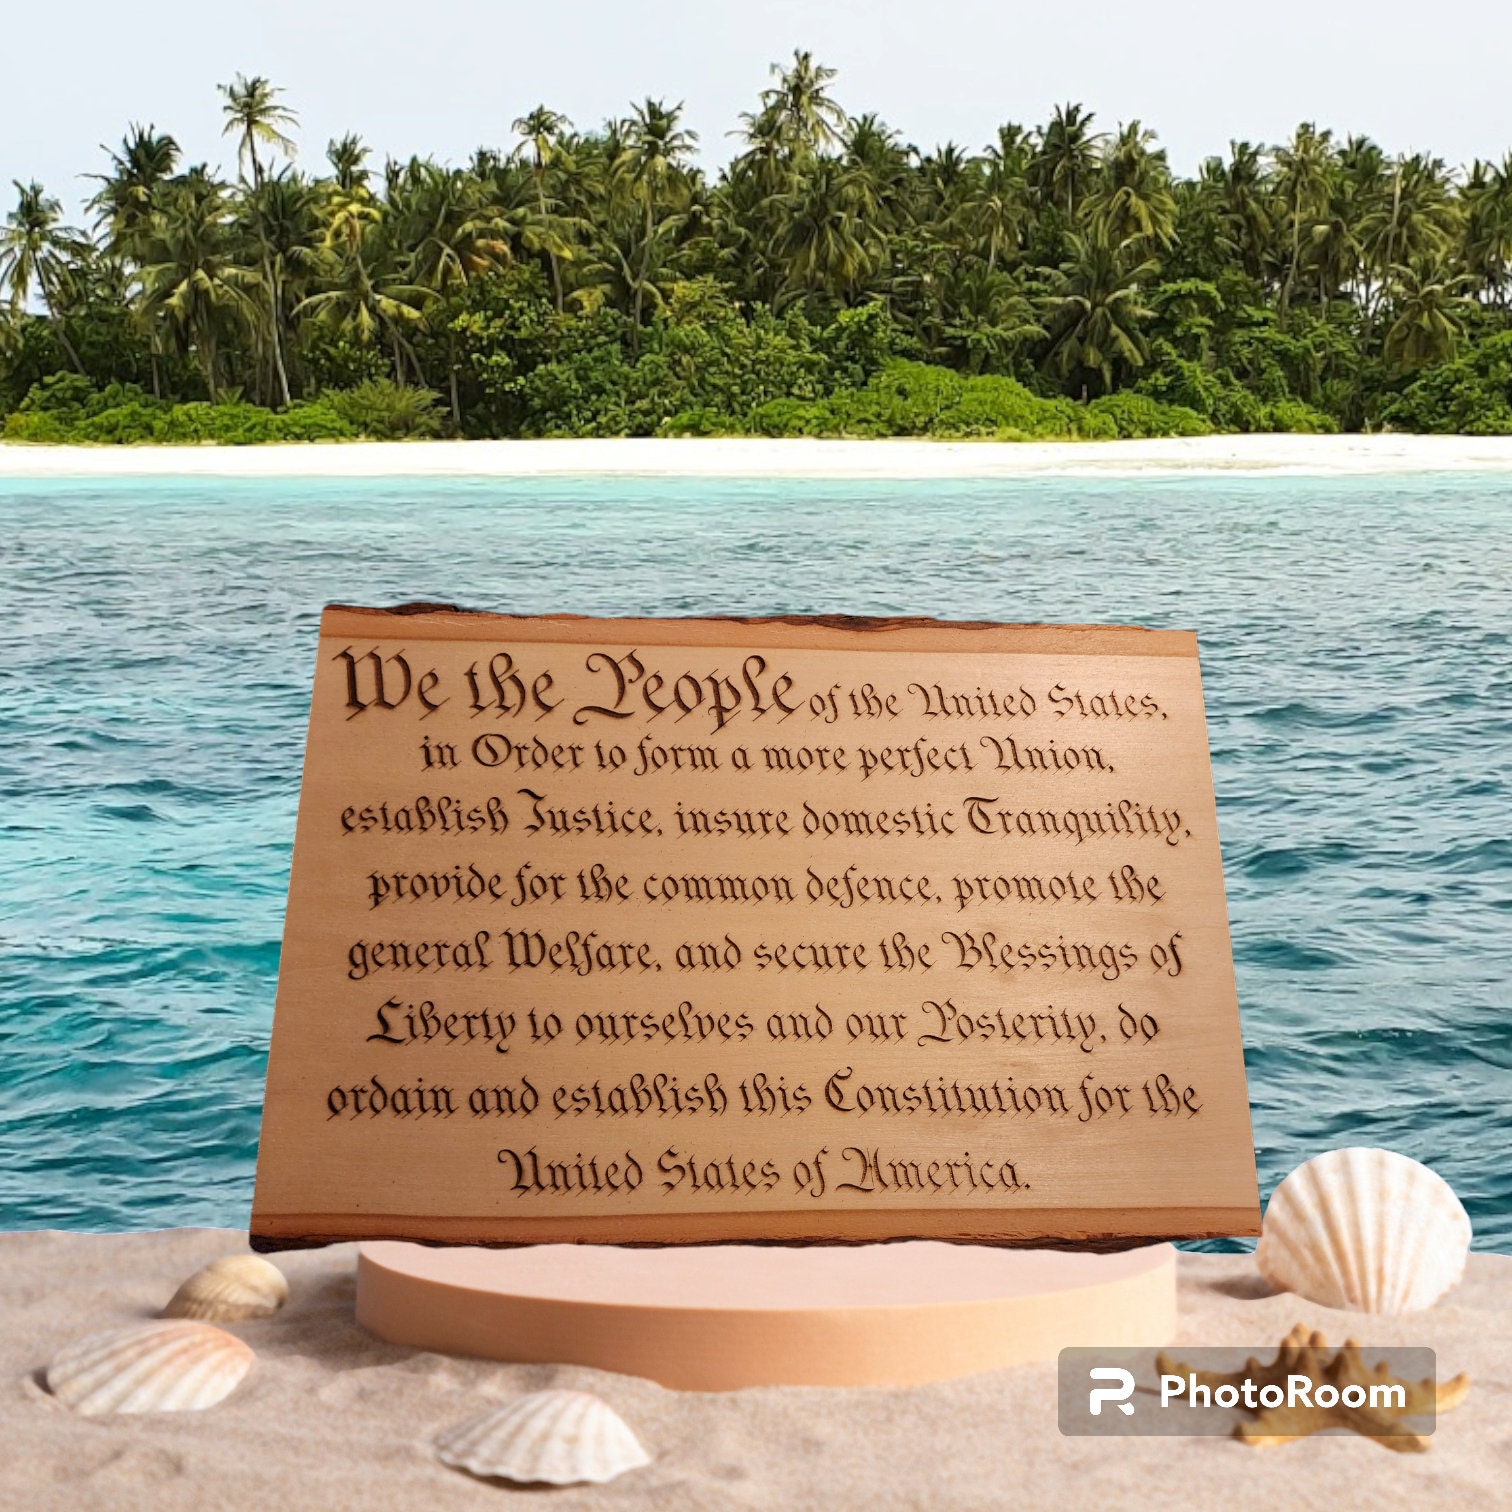 We the People of the United States,
in Order to form a more perfect Union,
establish Justice, insure domestic Tranquility,
provide for the common defence, promote the
general Welfare, and secure the Blessings of
Liberty to ourselves and our Posterity, do
ordain and establish this Constitution for the
United States of America.
PhotoRoom